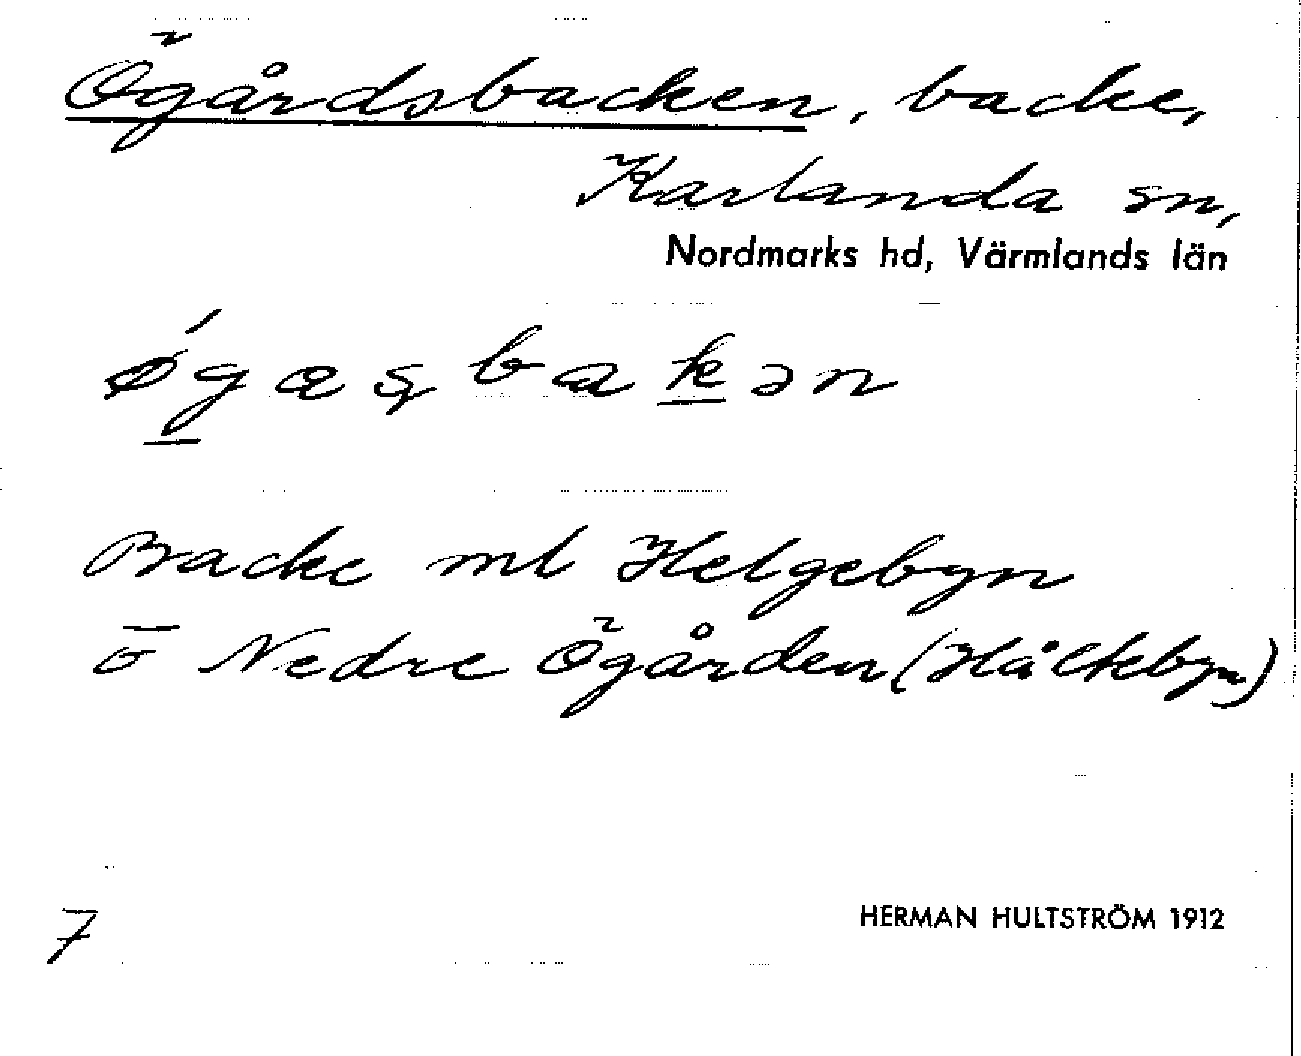 Ögårdsbacken, backe,
Karlanda sn,
Nordmarks hd, Värmlands län
ǿgasbakən
Backe ml Helgebyn
o Nedre Ögården (Hålkebyn)
7
HERMAN HULTSTRÖM 1912